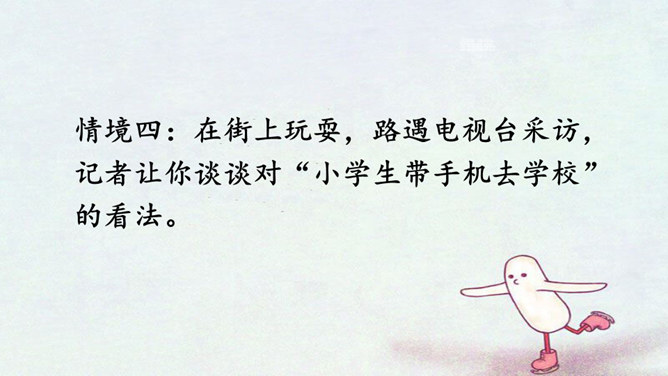 情境四：在街上玩耍，路遇电视台采访，
记者让你谈谈对“小学生带手机去学校”
的看法。